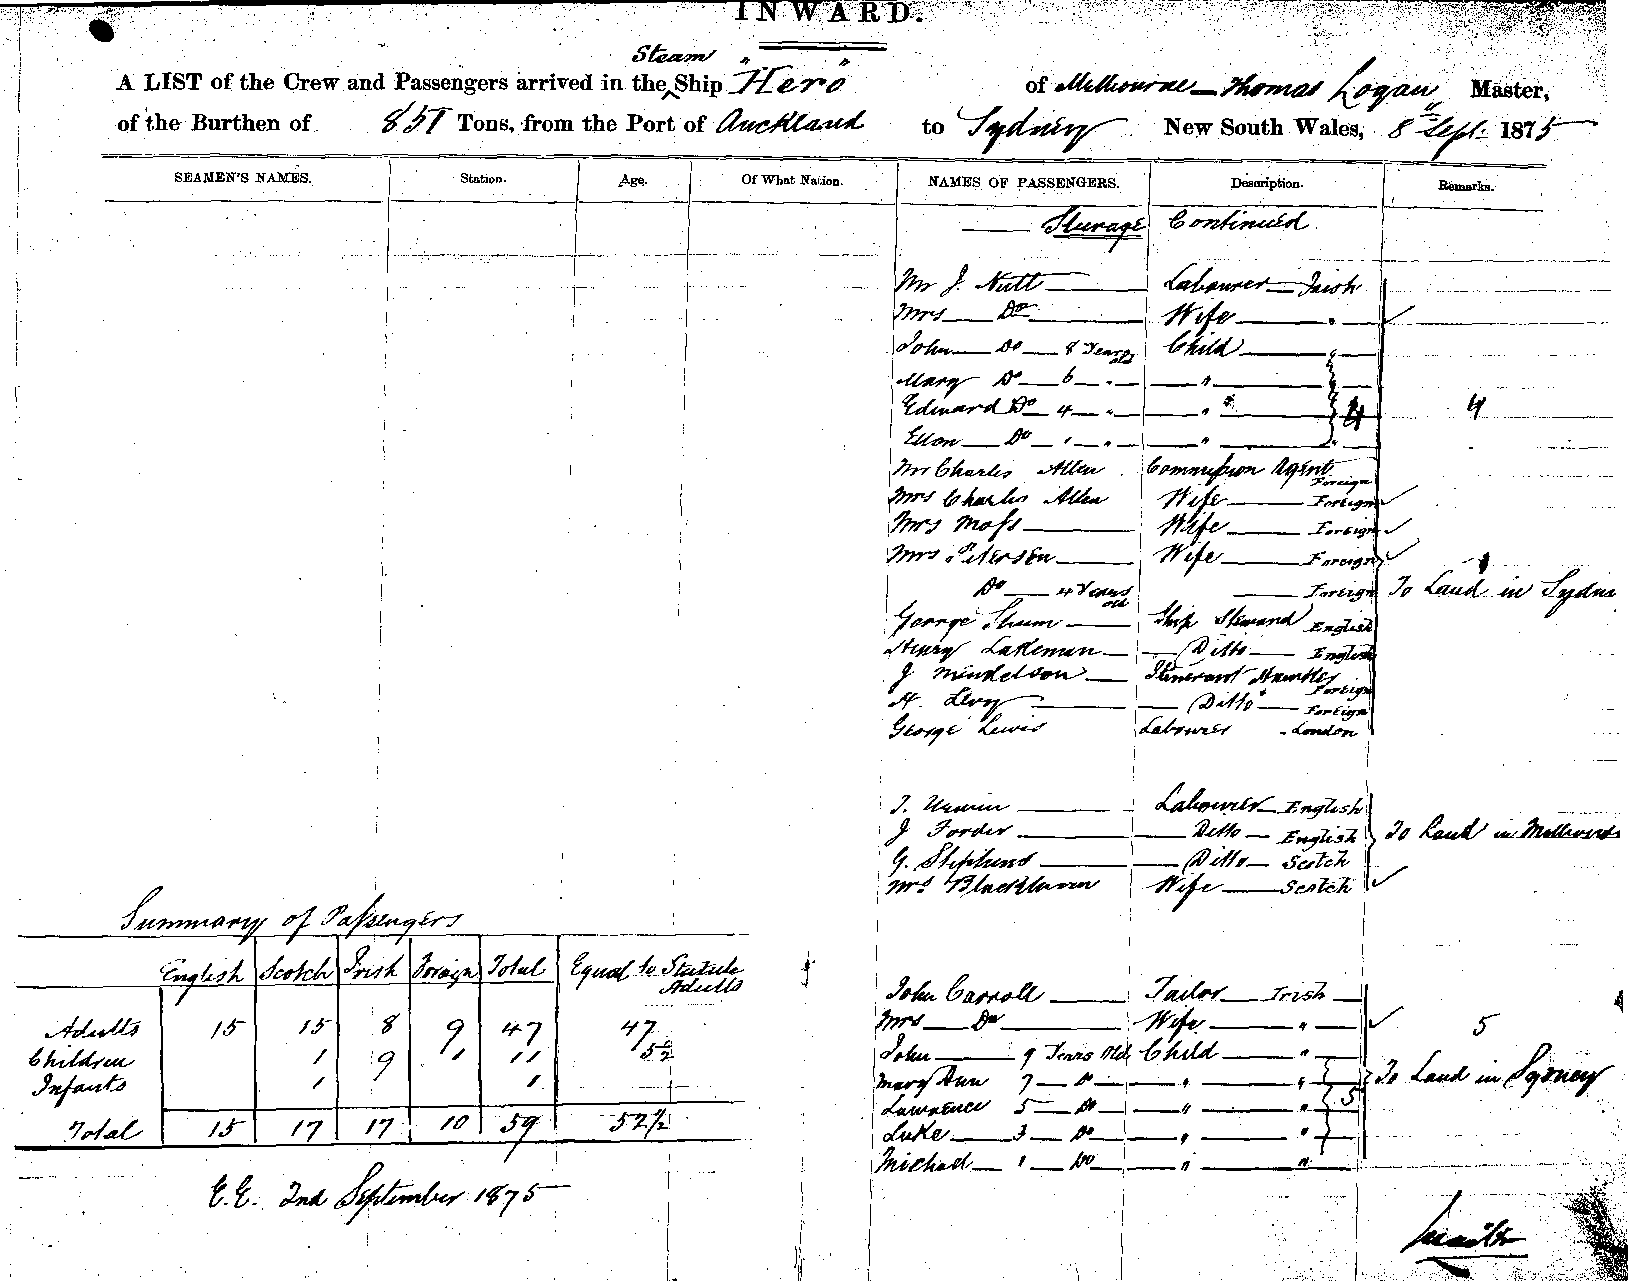 INWARD.
Steam
A LIST of the Crew and Passengers arrived in the Ship "Hero" of Melbourne — Thomas Logan Master,
of the Burthen of 851 Tons, from the Port of Auckland to Sydney New South Wales, 8th Sept. 1875
SEAMEN'S NAMES. Station. Age. Of What Nation. NAMES OF PASSENGERS. Description. Remarks.
Steerage Continued
Mr J. Nutt Labourer Irish
Mrs Do Wife "
John Do 8 Years old Child "
Mary Do 6 " " "
Edward Do 4 " " 4 4
Ellen Do 1 " " "
Mr Charles Allen Commission Agent Foreign
Mrs Charles Allen Wife Foreign
Mrs Moss Wife Foreign
Mrs Petersen Wife Foreign
Do 4 Years old Foreign To Land in
George Shum Ship Steward English
Henry Lakeman Ditto English
J Mendelson Itinerant Foreign
H. Levy Ditto Foreign
George Lewis Labourer London
T. Labourer English
J Forder Ditto English To Land in
G. Stephens Ditto Scotch
Mrs Wife Scotch
Summary of Passengers
English Scotch Irish Foreign Total Equal to Statute Adults
Adults 15 15 8 9 47 47
Children 1 9 1 11 5½
Infants 1 1
Total 15 17 17 10 59 52½
E.E. 2nd September 1875
John Carroll Tailor Irish
Mrs Do Wife " 5
John 9 Years Old Child "
Mary Ann 7 Do " " To Land in Sydney
Lawrence 5 Do " " 5
Luke 3 Do " "
Michael 1 Do " "